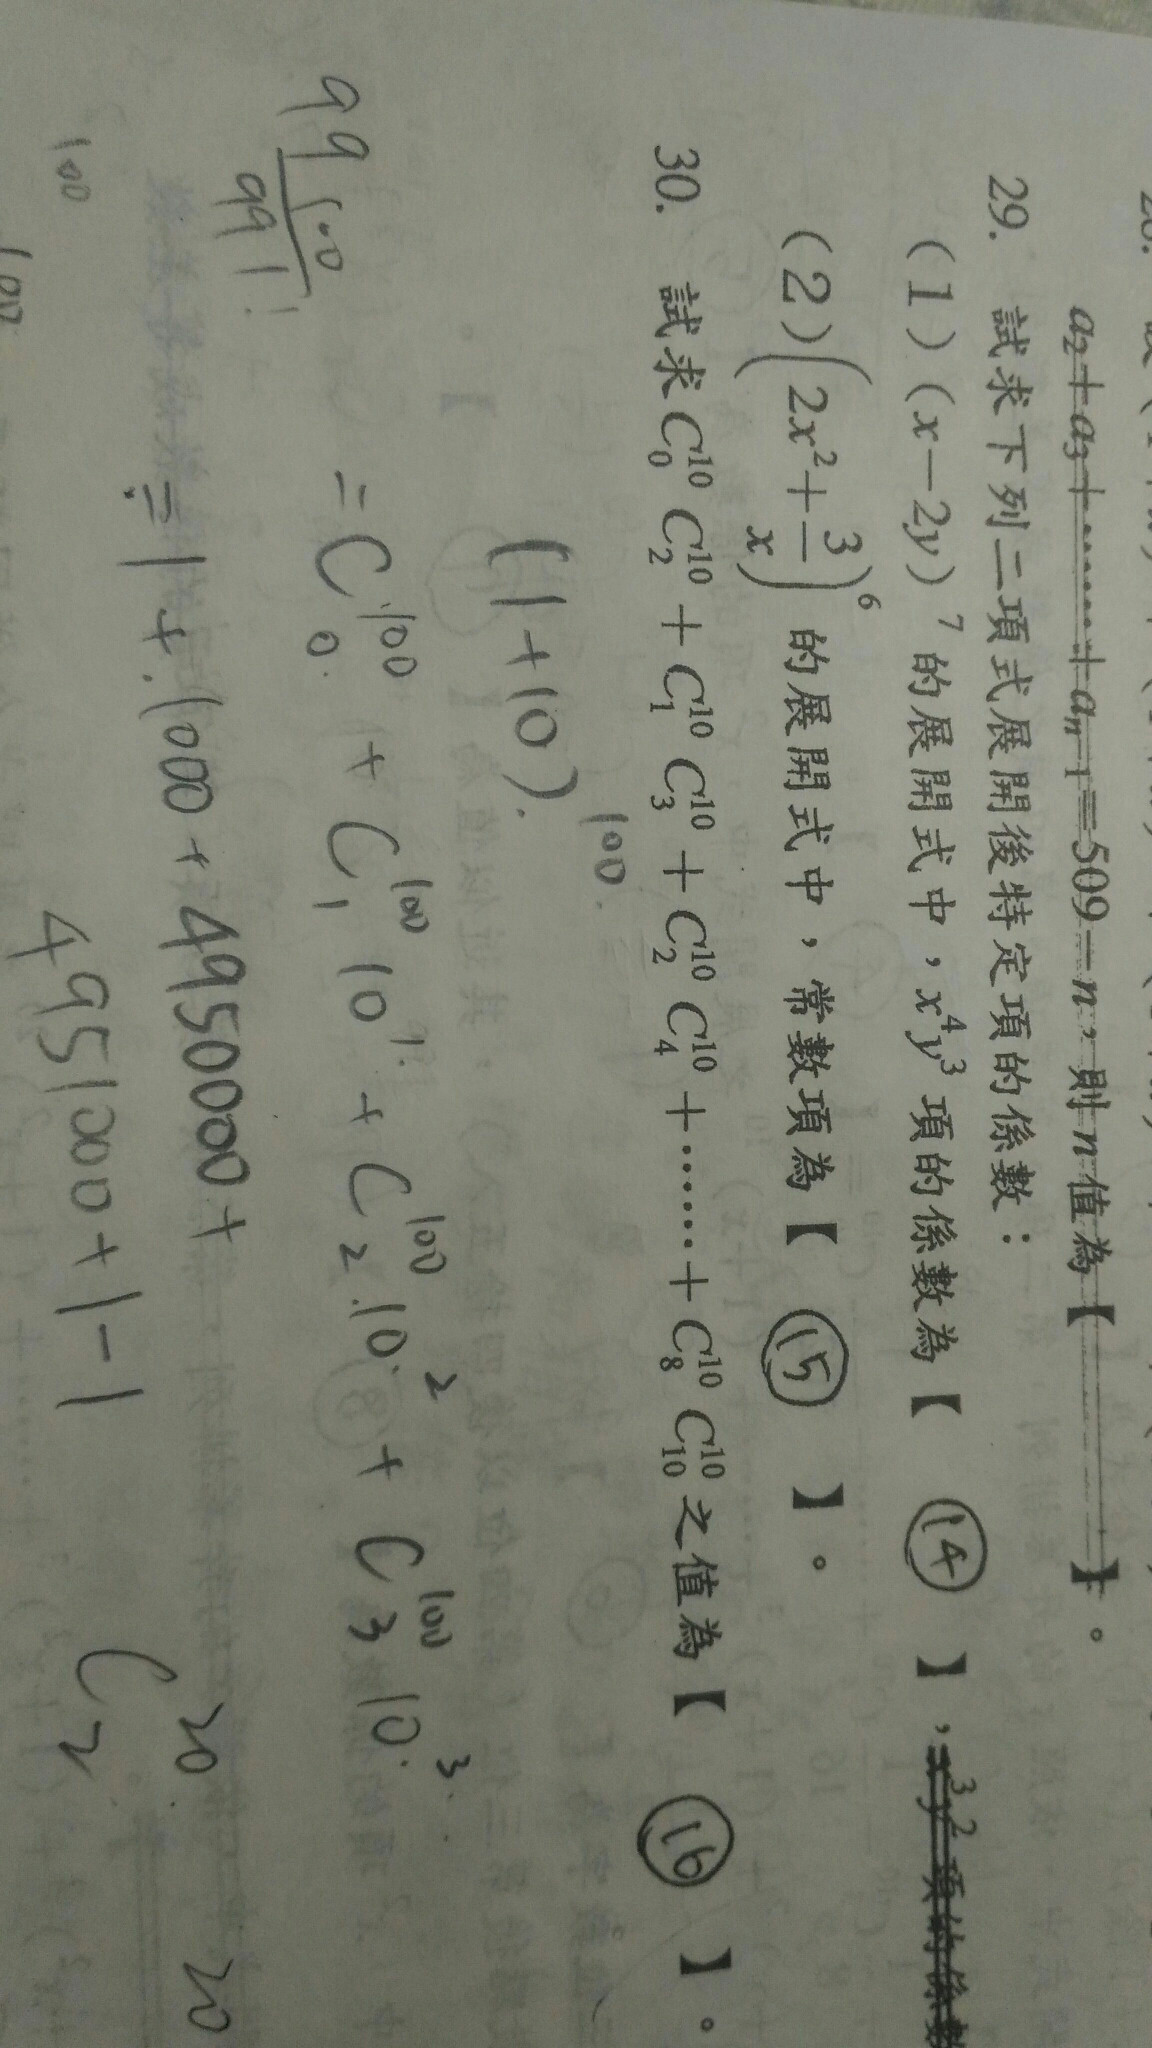 a₂+a₃+……+aₙ₋₁=509−n，則n值為【 】。
29. 試求下列二項式展開後特定項的係數：
(1) (x−2y)⁷的展開式中，x⁴y³項的係數為【 ⑭ 】，x³y²項的係數
(2) (2x²+3/x)⁶的展開式中，常數項為【 ⑮ 】。
30. 試求C₀¹⁰C₂¹⁰+C₁¹⁰C₃¹⁰+C₂¹⁰C₄¹⁰+……+C₈¹⁰C₁₀¹⁰之值為【 ⑯ 】。
(1+10)¹⁰⁰
=C₀¹⁰⁰+C₁¹⁰⁰10¹+C₂¹⁰⁰10²+C₃¹⁰⁰10³
99 100
99!
=1+1000+495000+
4951000+1−1
C₂²⁰
20
100
100